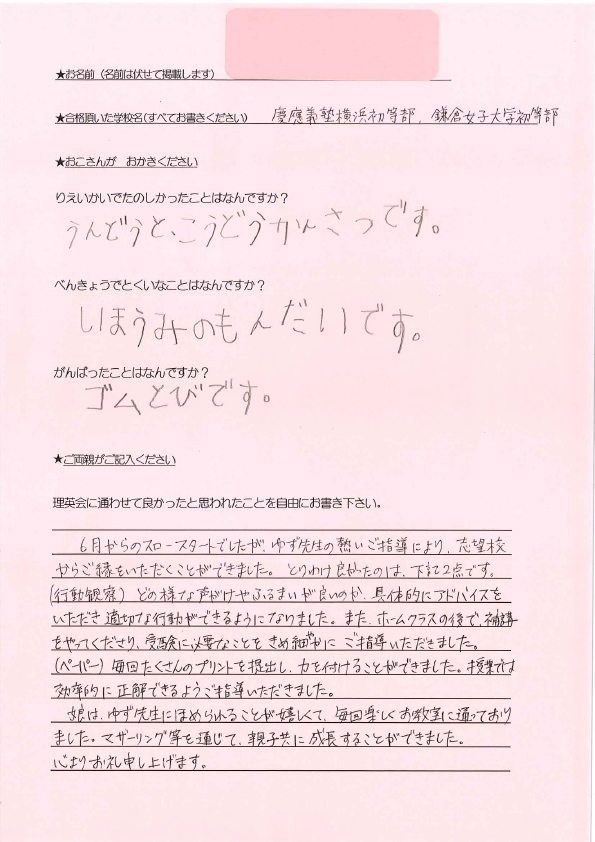 ★お名前（名前は伏せて掲載します）
★合格頂いた学校名（すべてお書きください） 慶應義塾横浜初等部、鎌倉女子大学初等部
★おこさんが　おかきください
りえいかいでたのしかったことはなんですか？
うんどうと、こうどうかんさつです。
べんきょうでとくいなことはなんですか？
しほうみのもんだいです。
がんばったことはなんですか？
ゴムとびです。
★ご両親がご記入ください
理英会に通わせて良かったと思われたことを自由にお書き下さい。
6月からのスロースタートでしたが、ゆず先生の熱いご指導により、志望校
からご縁をいただくことができました。とりわけ良かったのは、下記2点です。
(行動観察) どの様な声がけやふるまいが良いのか、具体的にアドバイスを
いただき適切な行動ができるようになりました。また、ホームクラスの後で、補講
をやってくださり、受験に必要なことをきめ細やかにご指導いただきました。
(ペーパー) 毎回たくさんのプリントを提出し、力を付けることができました。授業では
効率的に正解できるようご指導いただきました。
娘は、ゆず先生にほめられることが嬉しくて、毎回楽しくお教室に通っており
ました。マザーリング等を通じて、親子共に成長することができました。
心よりお礼申し上げます。